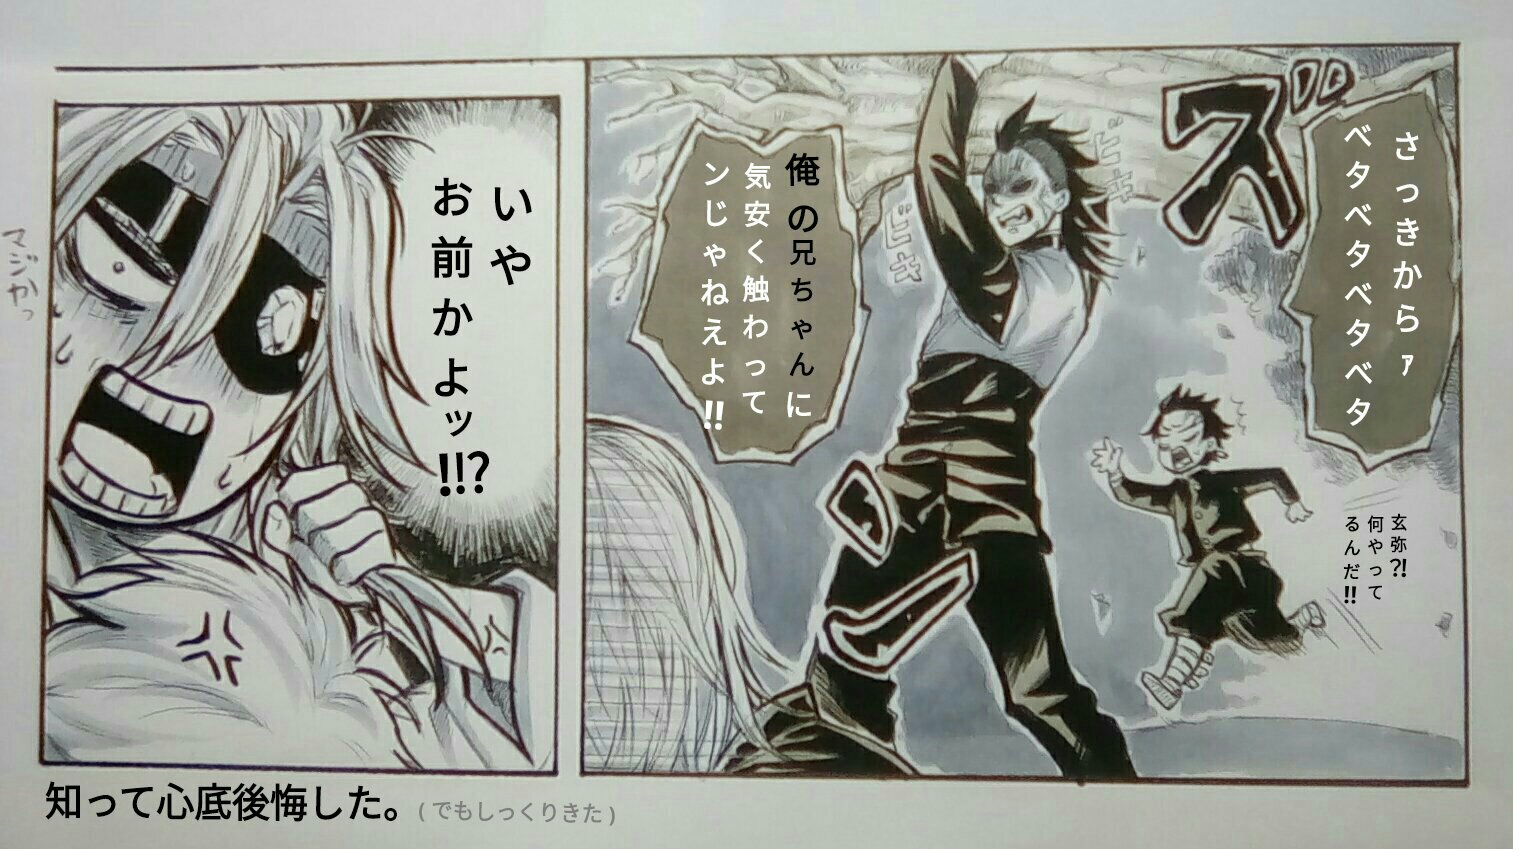 さっきからァ
ベタベタベタベタ
ズ
俺の兄ちゃんに
気安く触わって
ンじゃねえよ!!
ビキ
ビキ
玄弥?!
何やって
るんだ!!
いや
お前かよッ
!!?
マジかっ
知って心底後悔した。(でもしっくりきた)